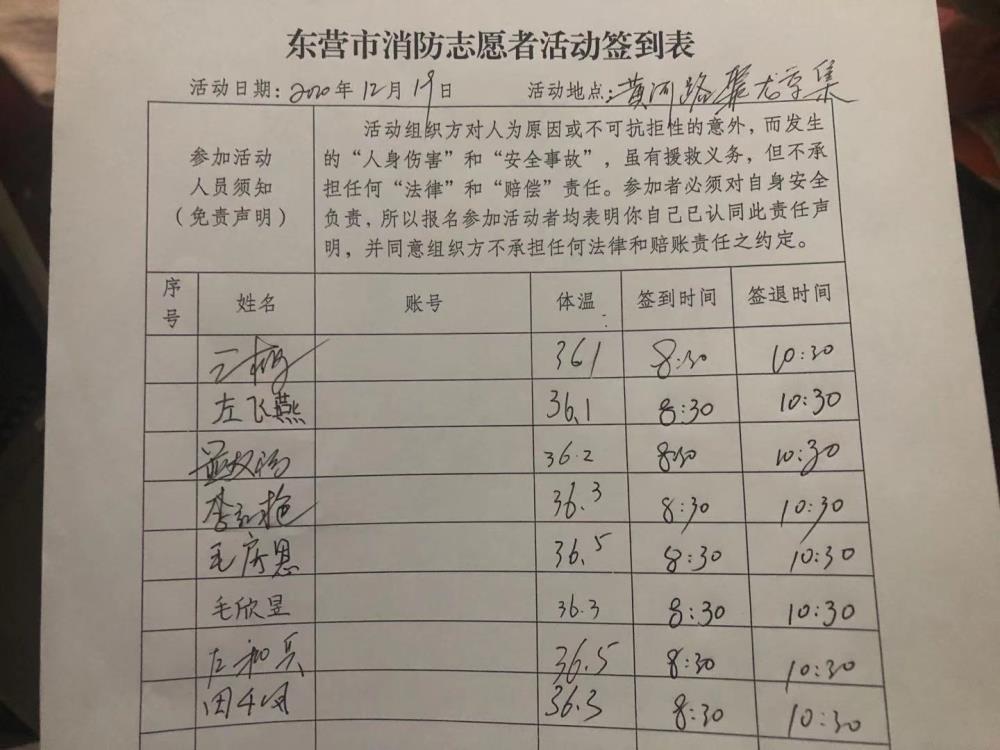 东营市消防志愿者活动签到表
活动日期：2020年12月19日 活动地点：黄河路
参加活动
人员须知
（免责声明）
活动组织方对人为原因或不可抗拒性的意外，而发生
的“人身伤害”和“安全事故”，虽有援救义务，但不承
担任何“法律”和“赔偿”责任。参加者必须对自身安全
负责，所以报名参加活动者均表明你自己已认同此责任声
明，并同意组织方不承担任何法律和赔账责任之约定。
序号 姓名 账号 体温 签到时间 签退时间
361 8:30 10:30
左飞燕 36.1 8:30 10:30
36.2 8:30 10:30
36.3 8:30 10:30
毛庆恩 36.5 8:30 10:30
毛欣昱 36.3 8:30 10:30
36.5 8:30 10:30
36.3 8:30 10:30